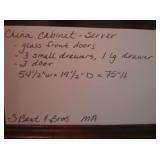 China Cabinet - Server
- glass front doors
- 3 small drawers, 1 lg drawer
- 3 door
54 1/2" w x 19 1/2" D x 75" h
S Bent & Bros MA